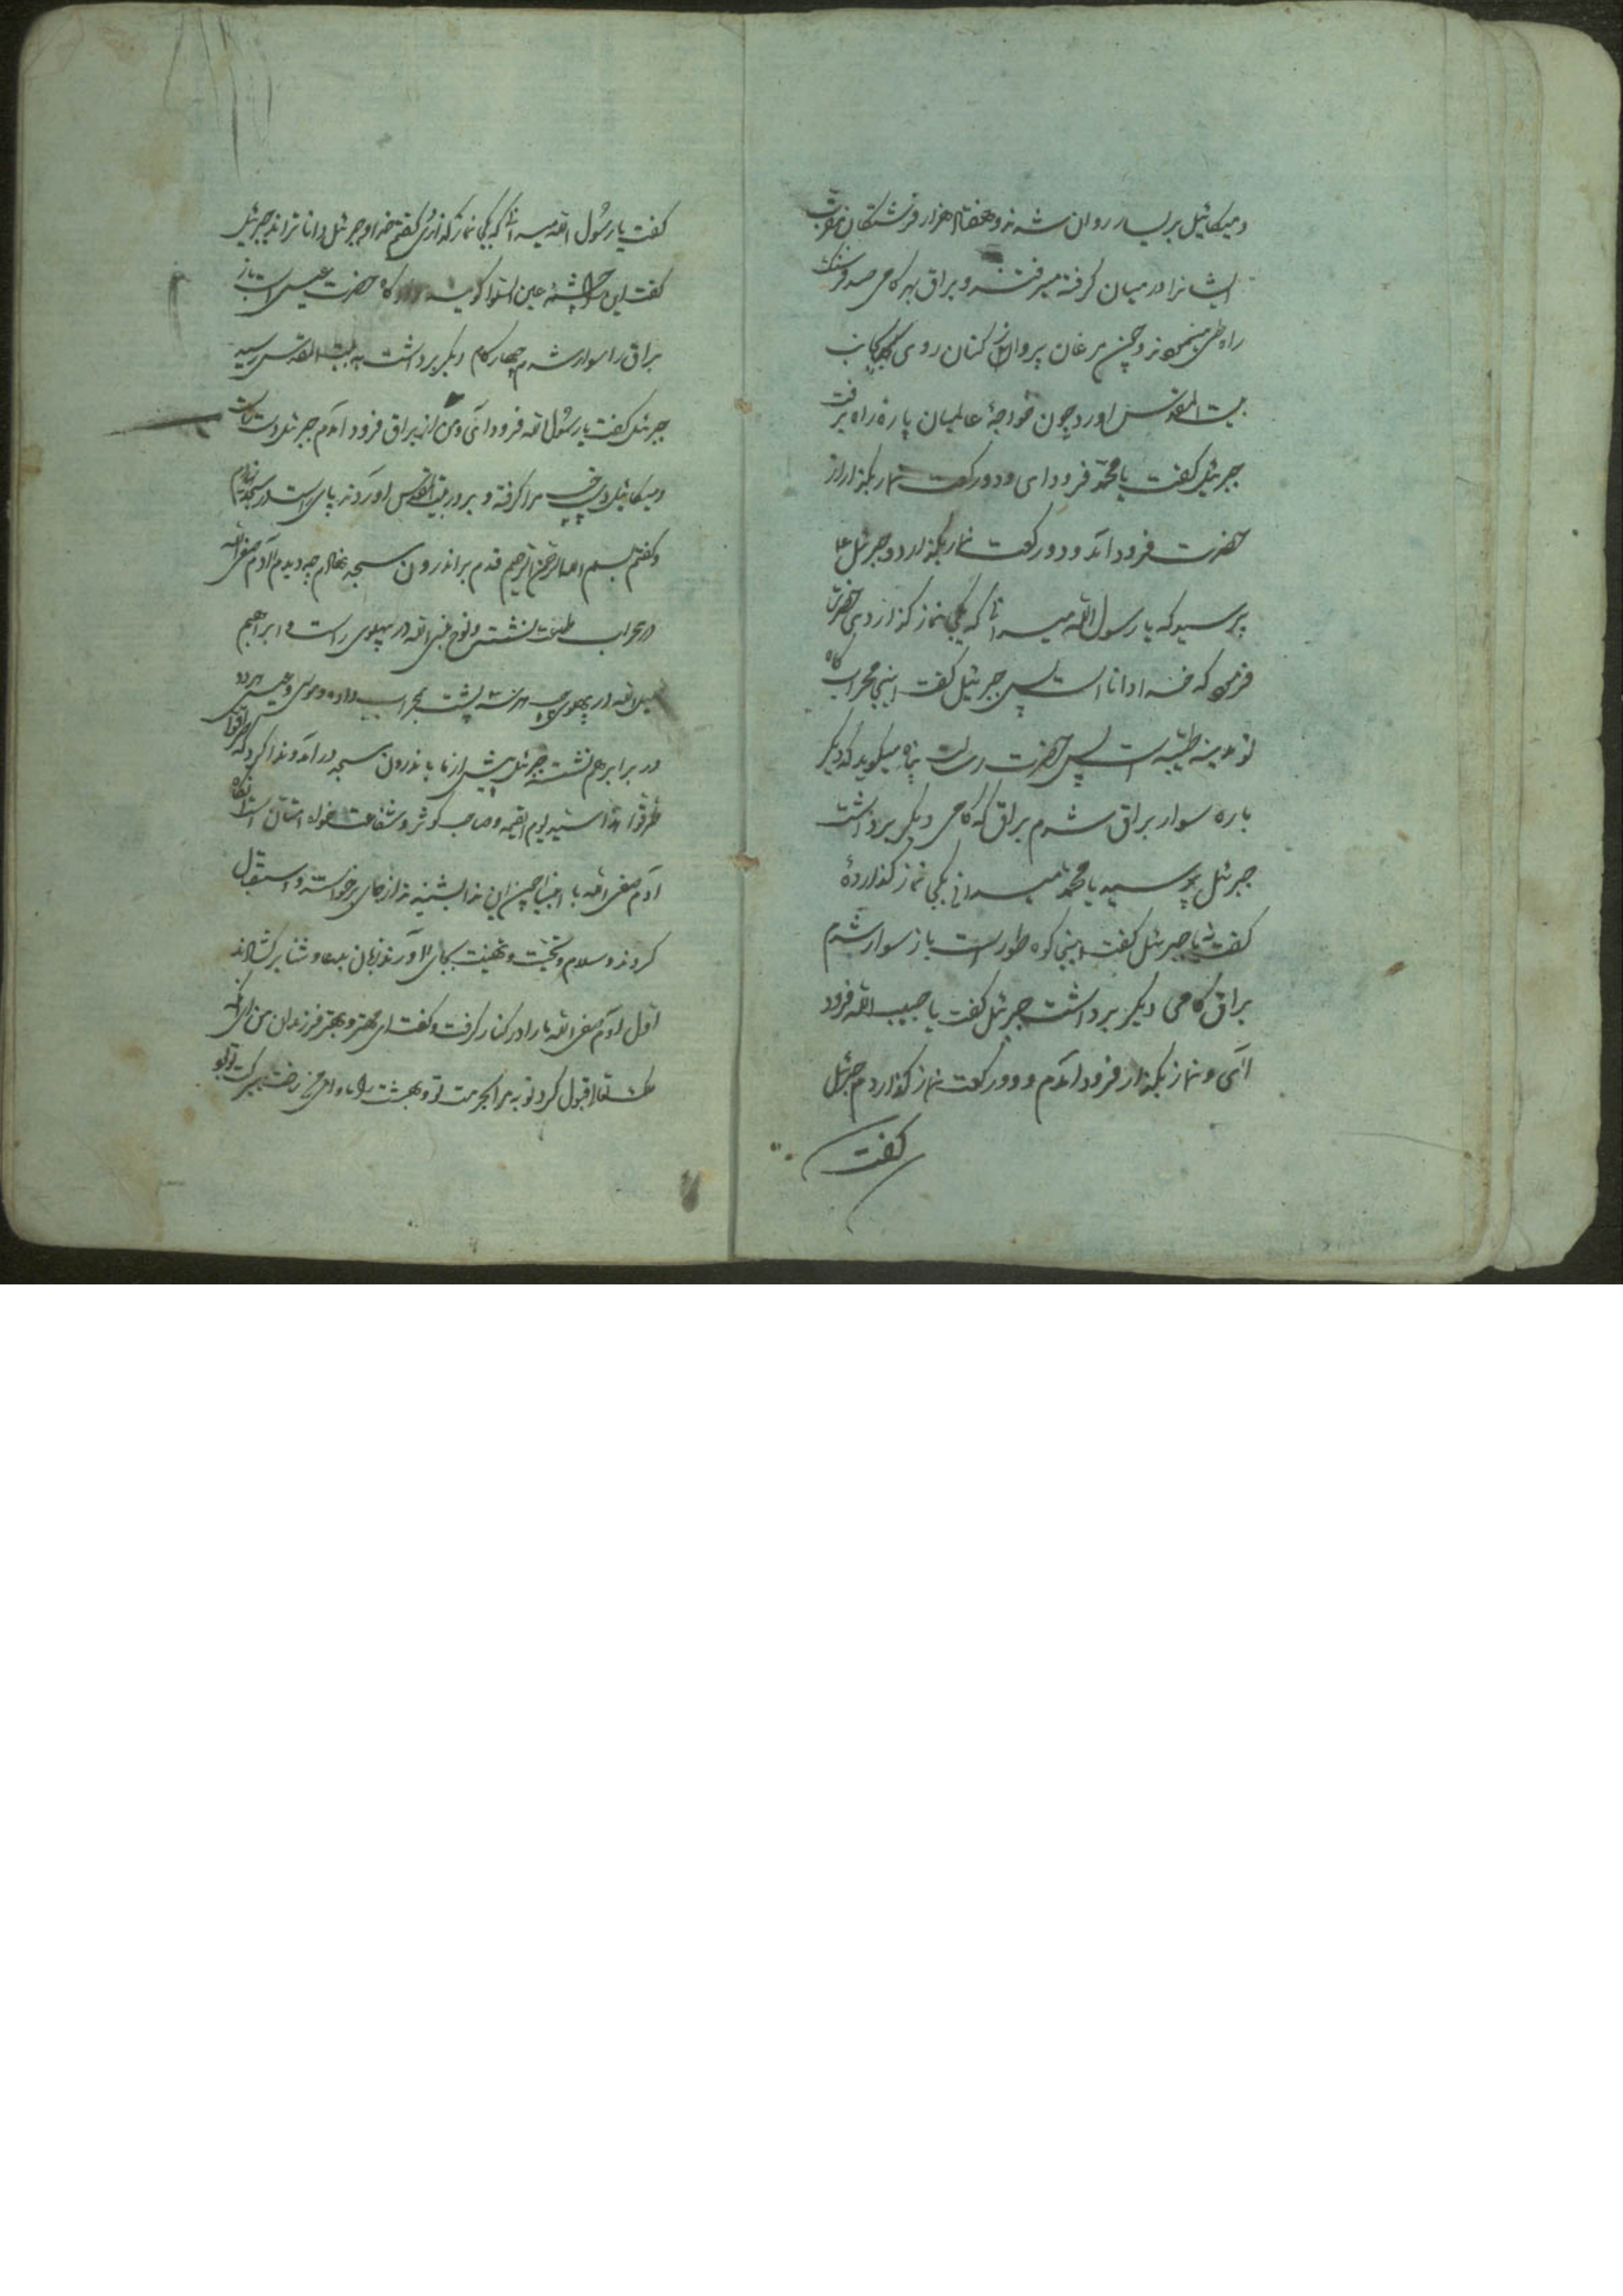 و میکائیل بر یسار روان شدند و هفتاد هزار فرشتکان مقرب
ایشانرا در میان کرفته میرفتند و براق بهر کامی صد فرسنک
راه طی مینمود و چون مرغان پرواز کنان روی بجانب
بیت المقدس اورد چون خواجهٔ عالمیان پارهٔ راه برفت
جبرئیل کفت یا محمد فرود ای و دو رکعت نماز بکذار از
حضرت فرود آمد و دو رکعت نماز بکذارد و جبرئیل ع
پرسید که یا رسول الله میدانی که کجا نماز کذاردی حضرت
فرمود که خدا دانا است پس جبرئیل کفت اینجا محراب کاه
تو مدینه طیبه است پس حضرت رسالت پناه میکوید که دیکر
باره سوار براق شدم براق که کامی دیکر برداشت
جبرئیل پرسید یا محمد میدانی کجا نماز کذاردهٔ
کفت نه یا جبرئیل کفت اینجا کوه طور است باز سوار شدم
براق کامی دیکر برداشت جبرئیل کفت یا حبیب الله فرود
آئی و نماز بکذار فرود آمدم و دو رکعت نماز کذاردم جبرئیل
کفت
کفت یا رسول الله میدانی که کجا نماز کذاردی کفتم خدا و جبرئیل دانا تراند جبرئیل
کفت این چشمه عین استوا کویند و کاه حضرت عیسی است باز
براق را سوار شدم چهار کام دیکر برداشت به بیت المقدس رسید
جبرئیل کفت یا رسول الله فرود آی و من از براق فرود آمدم جبرئیل دست راست
و میکائیل دست چپ مرا کرفته و بر در بیت المقدس اوردند پای راست در مسجد نهادم
و کفتم بسم الله الرحمن الرحیم قدم بر اندرون مسجد نهادم چه دیدم آدم صفی الله
در محراب طاعت نشسته و نوح نبی الله در پهلوی راست و ابراهیم
خلیل الله در پهلوی چپ هر سه پشت بمحراب داده و موسی و عیسی هر دو
در برابر هم نشسته جبرئیل پیش از ما باندرون مسجد در آمد و ندا کرد که طرقوا
طرقوا هذا سید یوم القیمه و صاحب کوثر و شفاعت خواه امتان است انکاه
آدم صفی الله با انبیا چون این ندا بشنیدند از جای برخواستند و استقبال
کردند و سلام و تحیت و تهنیت بجای آوردند زبان بدعا و ثنا بر کشادند
اول آدم صفی الله ما را در کنار کرفت و کفت ای مهتر و بهتر فرزندان من
حقتعالی قبول کرد توبه مرا بحرمت تو و بهشت را برکت تو بود